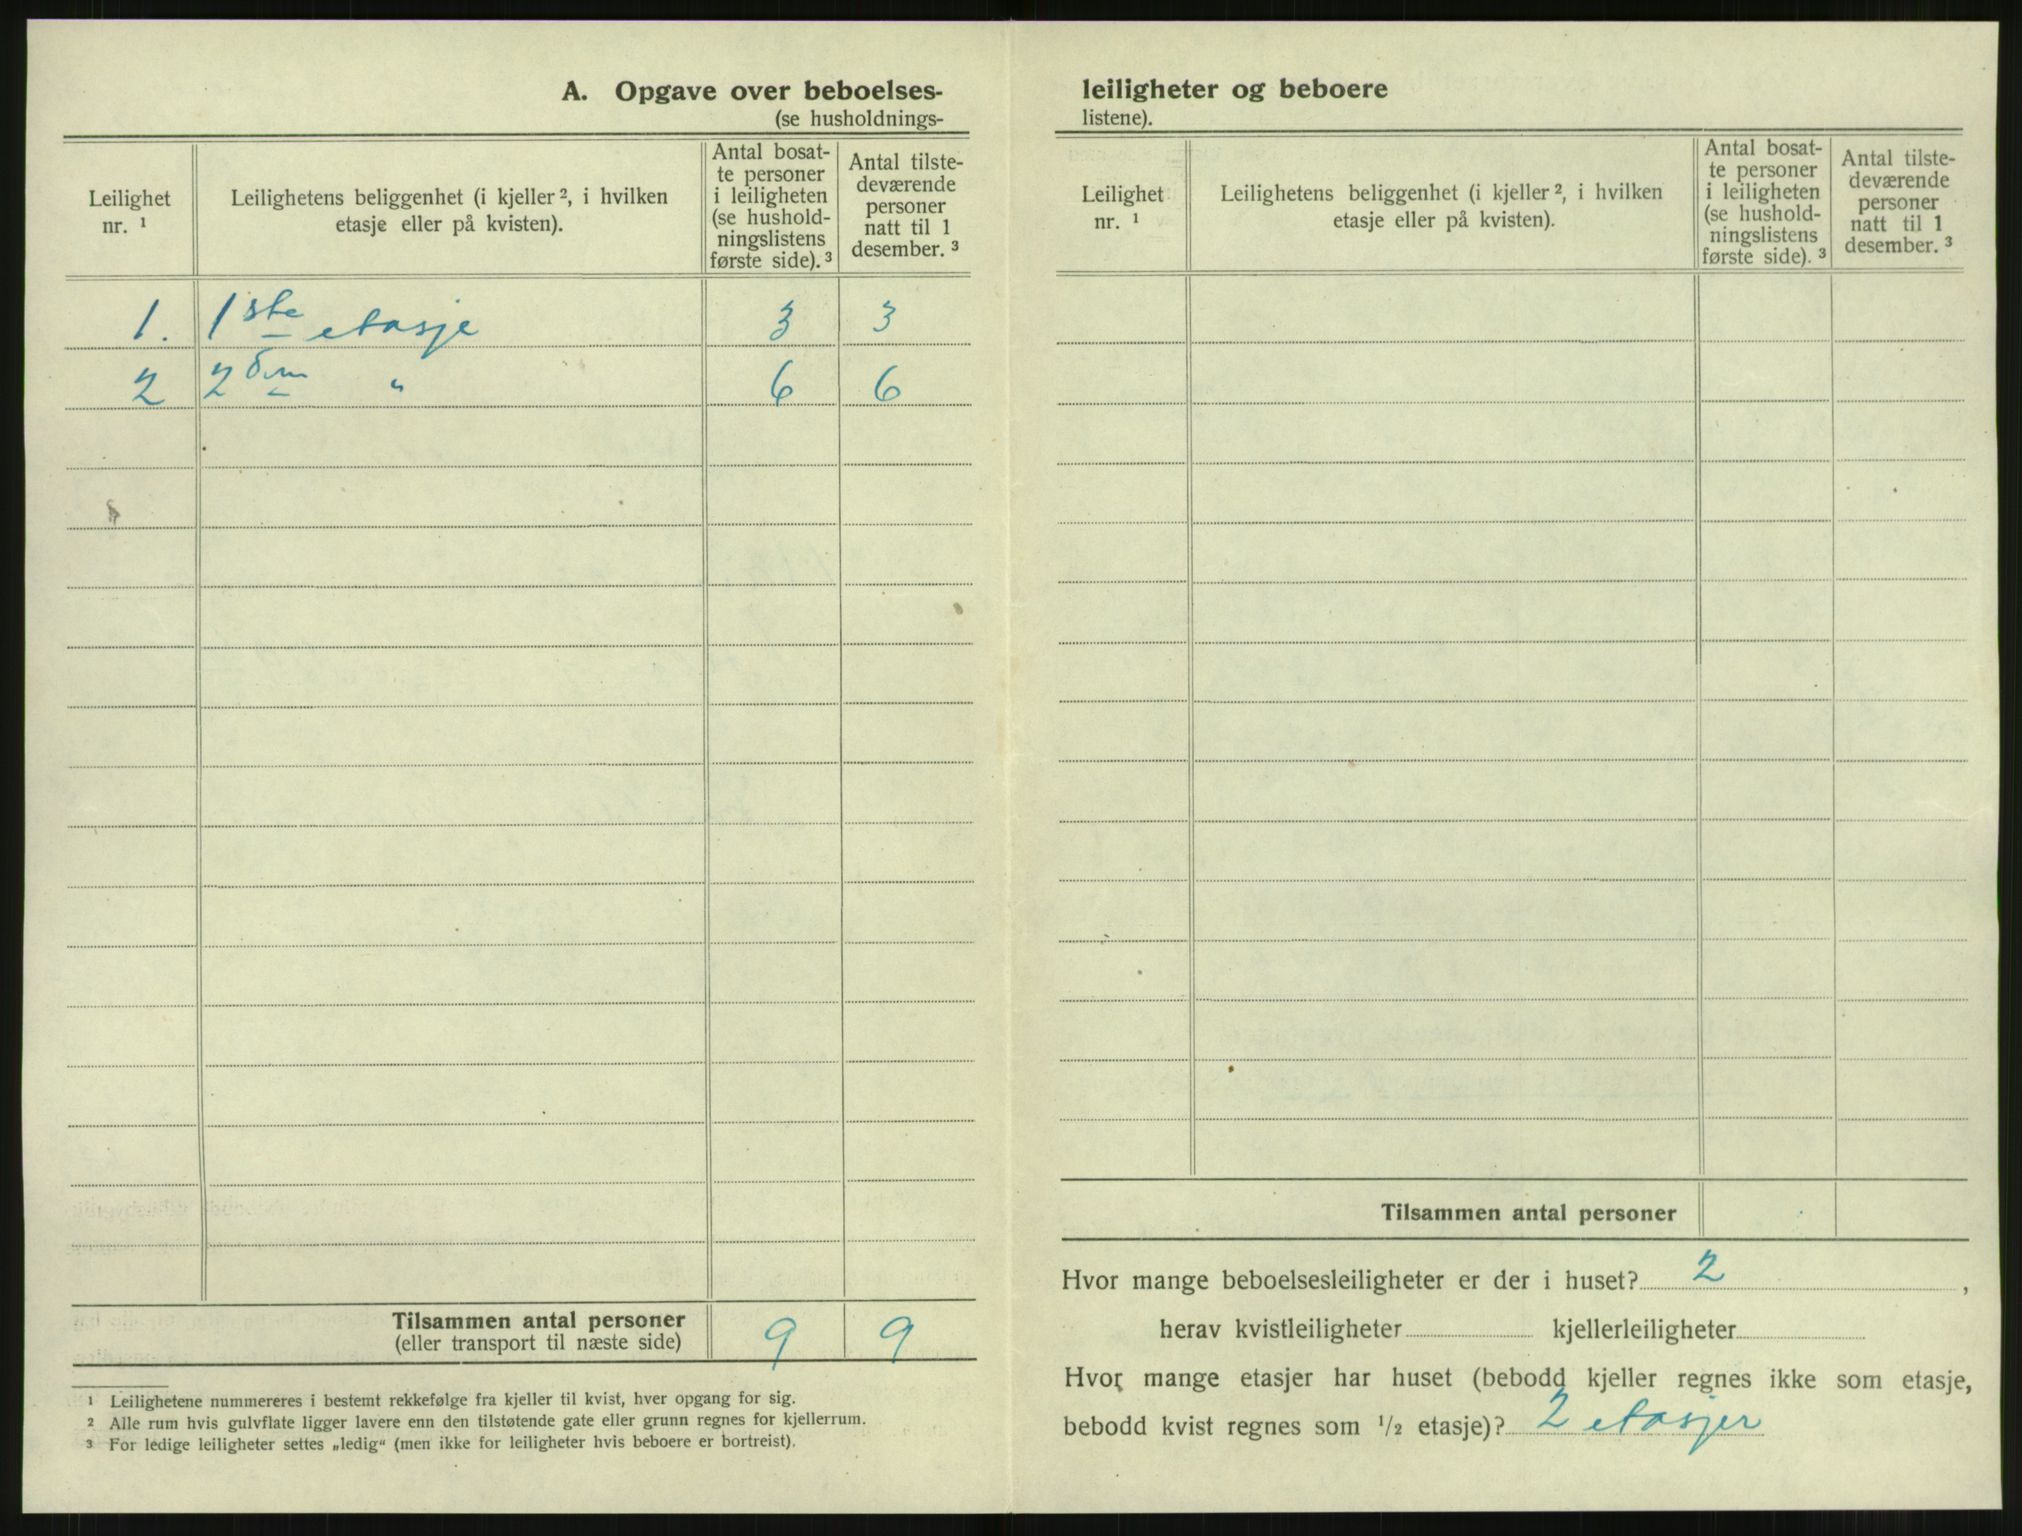 A. Opgave over beboelses-
(se husholdnings-
Leilighet
nr. ¹
Leilighetens beliggenhet (i kjeller ², i hvilken
etasje eller på kvisten).
Antal bosat-
te personer
i leiligheten
(se hushold-
ningslistens
første side). ³
Antal tilste-
deværende
personer
natt til 1
desember. ³
1. 1ste etasje 3 3
2 2den " 6 6
Tilsammen antal personer 9 9
(eller transport til næste side)
¹ Leilighetene nummereres i bestemt rekkefølge fra kjeller til kvist, hver opgang for sig.
² Alle rum hvis gulvflate ligger lavere enn den tilstøtende gate eller grunn regnes for kjellerrum.
³ For ledige leiligheter settes „ledig“ (men ikke for leiligheter hvis beboere er bortreist).
leiligheter og beboere
listene).
Leilighet
nr. ¹
Leilighetens beliggenhet (i kjeller ², i hvilken
etasje eller på kvisten).
Antal bosat-
te personer
i leiligheten
(se hushold-
ningslistens
første side). ³
Antal tilste-
deværende
personer
natt til 1
desember. ³
Tilsammen antal personer
Hvor mange beboelsesleiligheter er der i huset? 2 ,
herav kvistleiligheter kjellerleiligheter
Hvor mange etasjer har huset (bebodd kjeller regnes ikke som etasje,
bebodd kvist regnes som 1/2 etasje)? 2 etasjer